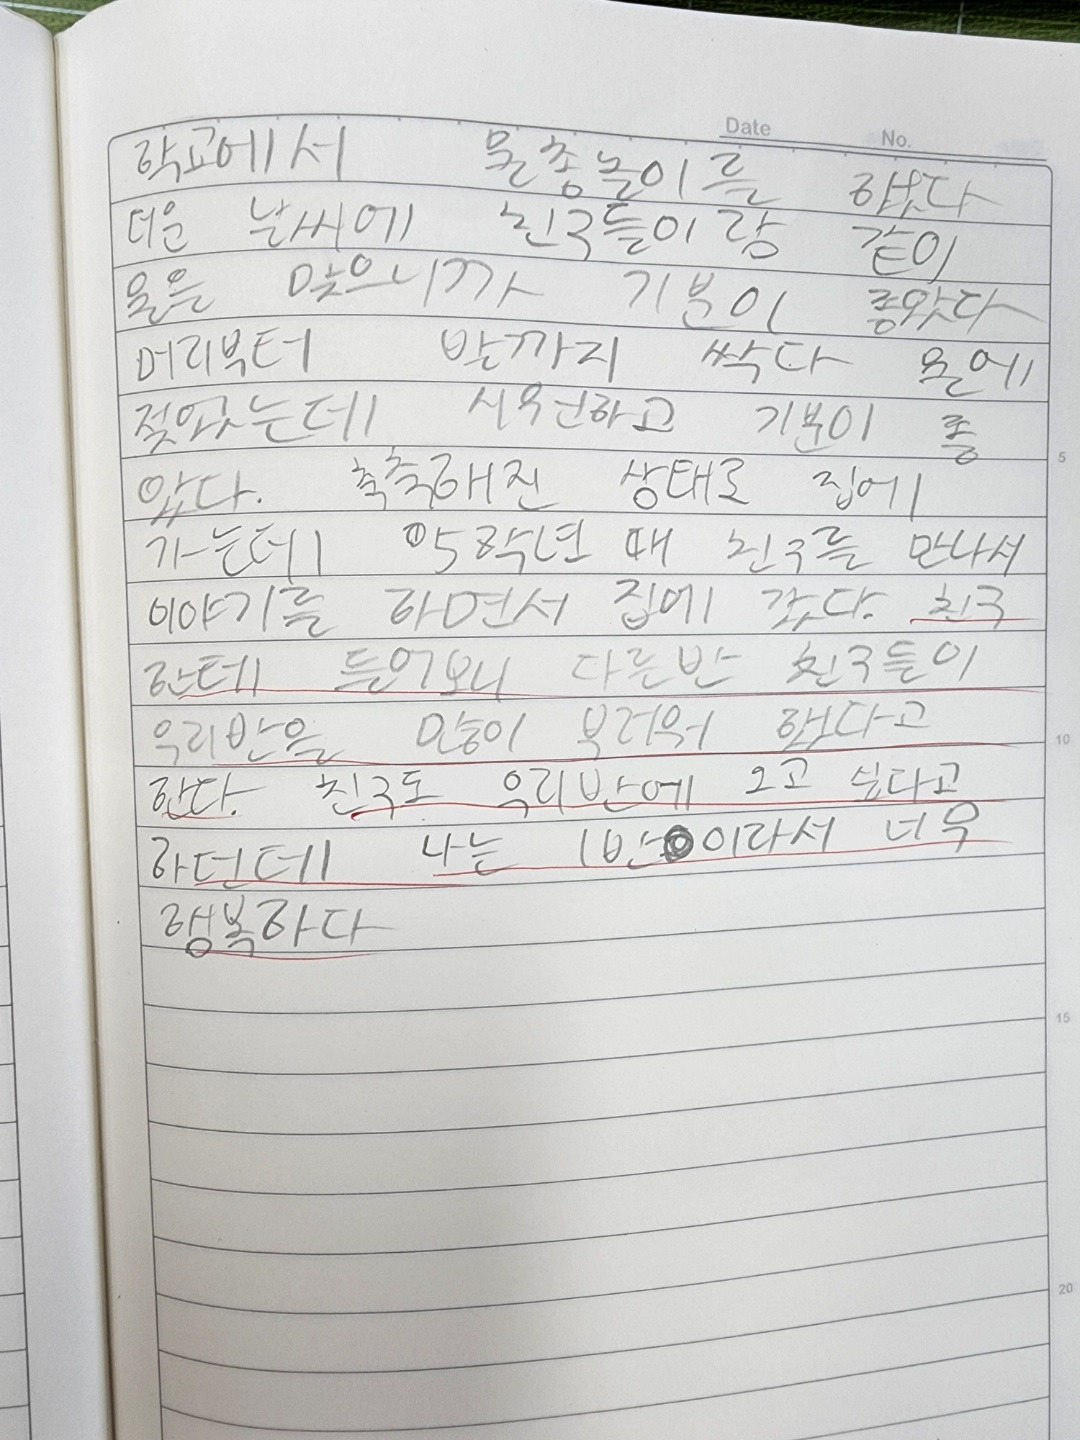 Date No.
학교에서 물총놀이를 했다
더운 날씨에 친구들이랑 같이
물을 맞으니까 기분이 좋았다
머리부터 발까지 싹다 물에
젖었는데 시원하고 기분이 좋
았다. 축축해진 상태로 집에
가는데 5학년 때 친구를 만나서
이야기를 하면서 집에 갔다. 친구
한테 들어보니 다른반 친구들이
우리반을 많이 부러워 했다고
한다. 친구도 우리반에 오고 싶다고
하던데 나는 1반이라서 너무
행복하다
5
10
15
20